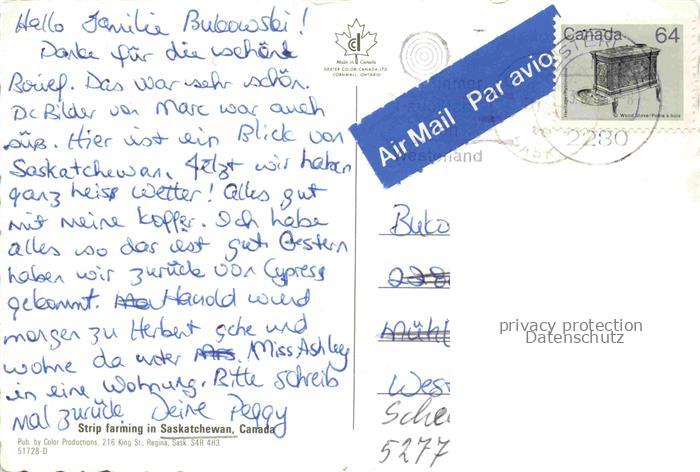 Hello Familie Bukowski!
Danke für die schöne
Brief. Das war sehr schön.
Die Bilder von Marc war auch
süß. Hier ist ein Blick von
Saskatchewan. Jetzt wir haben
ganz heiss Wetter! Alles gut
mit meine Koffer. Ich habe
alles so das ist gut. Gestern
haben wir zurück von Cypress
gekommt. Harold wird
morgen zu Herbert gehe und
wohne da unter Miss Ashley
in eine Wohnung. Bitte schreib
mal zurück Deine Peggy
Strip farming in Saskatchewan, Canada
Pub. by Color Productions, 216 King St., Regina, Sask. S4R 4H3
51728-D
Made in Canada
DEXTER COLOR CANADA LTD.
CORNWALL, ONTARIO
Air Mail Par avion
Canada 64
Wood Stove/Poêle à bois
2280
Westerland
Buko
Mühl
Wes
Sche
5277
privacy protection
Datenschutz